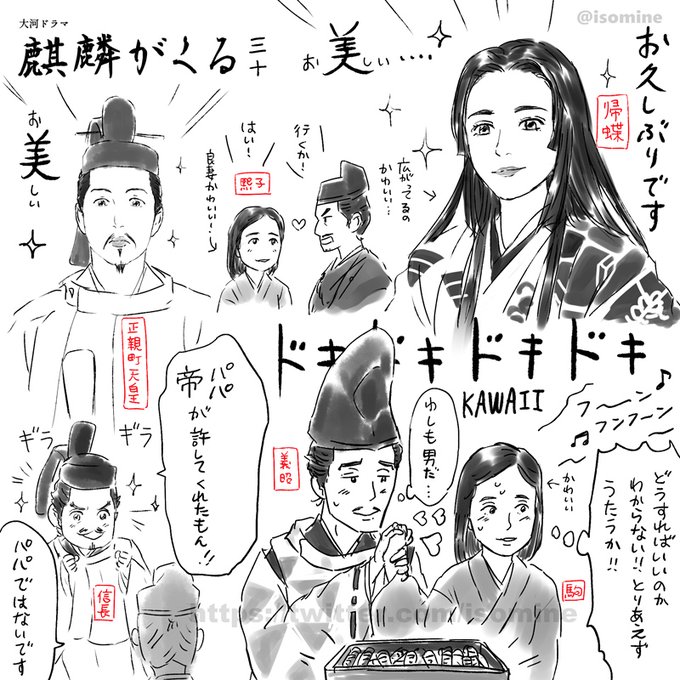 @isomine
大河ドラマ
麒麟がくる三十
お美しい‥‥
お久しぶりです
帰蝶
お美しい
正親町天皇
はい!
行くか!
熙子
良妻かわいい…
広がってるの
かわいい…
ドキドキドキドキ
KAWAII
フ〜〜ン♪
♫フンフーン
どうすればいいのか
わからない!!とりあえず
うたうか!!
かわいい
駒
わしも男だ…
義昭
パパ
帝が許してくれたもん!!
ギラ
ギラ
信長
パパではないです
https://twitter.com/isomine